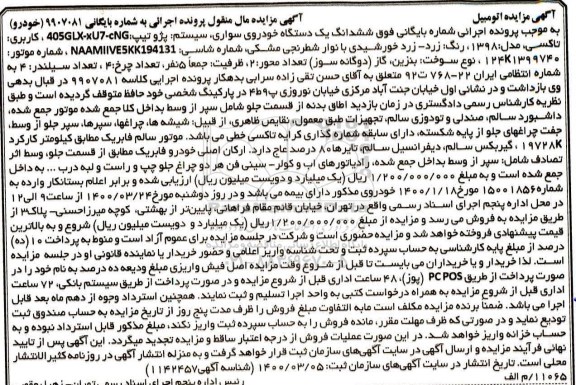 آگهی مزایده اتومبیل آگهی مزایده مال منقول پرونده اجرائی به شماره بایگانی ۹۹۰۷۰۸۱ (خودرو)
به موجب پرونده اجرائی شماره بایگانی فوق ششدانگ یک دستگاه خودروی سواری، سیستم: پژو تیپ: 405GLX-xU7-cNG، کاربری:
تاکسی، مدل: ۱۳۹۸، رنگ: زرد- زرد خورشیدی با نوار شطرنجی مشکی، شماره شاسی: NAAMIIVE5KK194131 ، شماره موتور:
۱۲۴K۱۳۹۹۷۴۰ ، نوع سوخت: بنزین، گاز (دوگانه سوز) تعداد محور: ۲، ظرفیت: جمعاً ۵نفر، تعداد چرخ: ۴، تعداد سیلندر: ۴ به
شماره انتظامی ایران ۲۲-۷۶۸ ت ۹۲ متعلق به آقای حسن تقی زاده سرابی بدهکار پرونده اجرایی کلاسه ۹۹۰۷۰۸۱ در قبال بدهی
وی بازداشت و در نشانی اول خیابان جنت آباد مرکزی خیابان نوروزی پ۴ط۹ در پارکینگ شخصی خود حافظ متوقف گردیده است و طبق
نظریه کارشناس رسمی دادگستری در زمان بازدید اطاق بدنه از قسمت جلو شامل سپر از وسط بداخل کلا جمع شده موتور جمع شده،
داشبورد سالم، صندلی و تودوزی سالم، تجهیزات طبق معمول، نقایص ظاهری، از قبیل: شیشه ها، چراغها، سپرها، سپر جلو از وسط،
جفت چراغهای جلو از پایه شکسته، دارای سابقه شماره گذاری کرایه تاکسی خطی می باشد. موتور سالم فابریک مطابق کیلومتر کارکرد
۱۹۷۲۸K ، گیربکس سالم، دیفرانسیل سالم، تایرها ۸۰ درصد عاج دارد. ارکان اصلی خودرو فابریک مطابق از قسمت جلو، وسط اثر
تصادف شامل: سپر از وسط بداخل جمع شده، رادیاتورهای آب و کولر- سینی فن هر دو چراغ جلو چپ و راست و لبه درب ... به داخل
جمع شده است و به مبلغ ۱/۲۰۰/۰۰۰/۰۰۰ ریال (یک میلیارد و دویست میلیون ریال) ارزیابی شده و برابر اعلام بستانکار وارده به
شماره ۱۵۰۰۱۸۵۶ مورخ ۱۴۰۰/۱/۱۸ خودروی مذکور دارای بیمه می باشد و در روز دوشنبه مورخ ۱۴۰۰/۰۳/۲۴ از ساعت ۹ الی ۱۲
در محل اداره پنجم اجرای اسناد رسمی واقع در تهران، خیابان قائم مقام فراهانی، پایین‌تر از بهشتی، کوچه میرزاحسنی- پلاک ۳ از
طریق مزایده به فروش می رسد و مزایده از مبلغ ۱/۲۰۰/۰۰۰/۰۰۰ ریال (یک میلیارد و دویست میلیون ریال) شروع و به بالاترین
قیمت پیشنهادی فروخته خواهد شد و مزایده حضوری است و شرکت در جلسه مزایده برای عموم آزاد است و منوط به پرداخت ۱۰ (ده)
درصد از مبلغ پایه کارشناسی به حساب سپرده ثبت و تحت شناسه واریز اعلامی و حضور خریدار یا نماینده قانونی او در جلسه مزایده
است. لذا خریدار و یا خریداران می بایست تا قبل از شروع وقت مزایده اصل فیش واریزی مبلغ ودیعه ده درصد به نام خود را در
صورت پرداخت از طریق PC POS (پوز)، ۴۸ ساعت اداری قبل از شروع مزایده و در صورت پرداخت از طریق سیستم بانکی، ۷۲ ساعت
اداری قبل از شروع مزایده به همراه درخواست کتبی به واحد اجرا تسلیم و ثبت نمایند. همچنین استرداد وجوه از دهم ماه بعد قابل
اجرا می باشد. ضمنا برنده مزایده مکلف است مابه التفاوت مبلغ فروش را ظرف مدت پنج روز از تاریخ مزایده به حساب صندوق ثبت
تودیع نماید و در صورتی که ظرف مهلت مقرر، مانده فروش را به حساب سپرده ثبت واریز نکند، مبلغ مذکور قابل استرداد نبوده و به
حساب خزانه واریز خواهد شد. در این صورت عملیات فروش از درجه اعتبار ساقط و مزایده تجدید میگردد. این آگهی پس از تایید
نهائی فرآیند مزایده و ارسال آگهی در سایت آگهی‌های سازمان ثبت قرار خواهد گرفت و به منزله انتشار آگهی در روزنامه کثیرالانتشار
محلی است. تاریخ انتشار در سایت آگهی‌های سازمان ثبت: ۱۴۰۰/۰۳/۰۵ (شناسه آگهی ۱۱۴۲۴۵۷)
۱۱۰۶۵/م الف